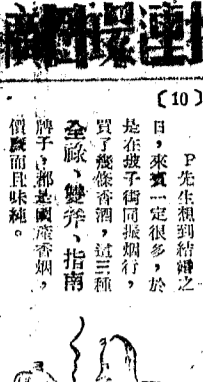 連環圖
（10）
P先生想到結婚之
日，來賓一定很多，於
是在坡子街同振烟行，
買了幾條香酒，這三種
全祿、雙斧、指南
牌子，都是國產香烟，
價廉而且味純。